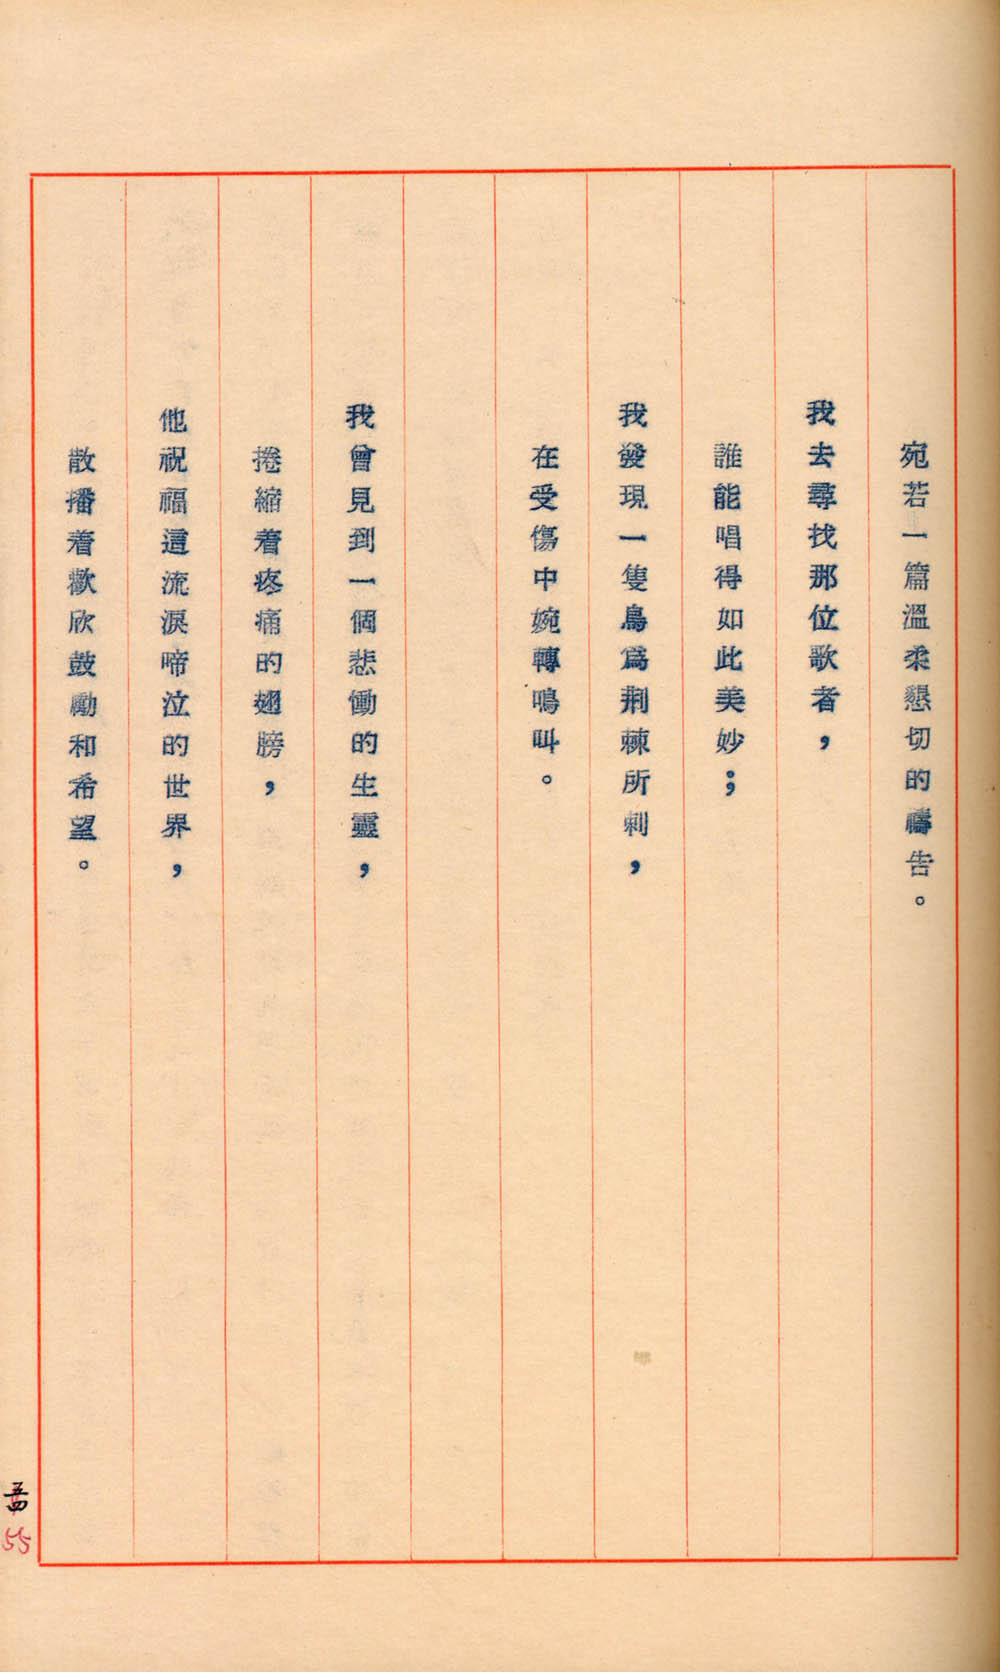 宛若一篇溫柔懇切的禱告。
我去尋找那位歌者，
誰能唱得如此美妙；
我發現一隻鳥為荆棘所刺，
在受傷中婉轉鳴叫。
我曾見到一個悲慟的生靈，
捲縮着疼痛的翅膀，
他祝福這流淚啼泣的世界，
散播着歡欣鼓勵和希望。
55